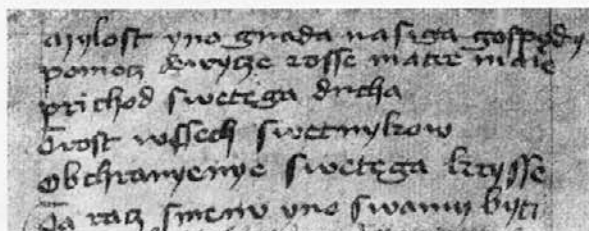 Mylost yno gnada nasiga gospody
pomocz dewycze rosse matir maie
prichod swetęga ducha
Prost wssech swetnykow
Obchranyenye swetęga krzysse
Da racz smenu yno swamy byti